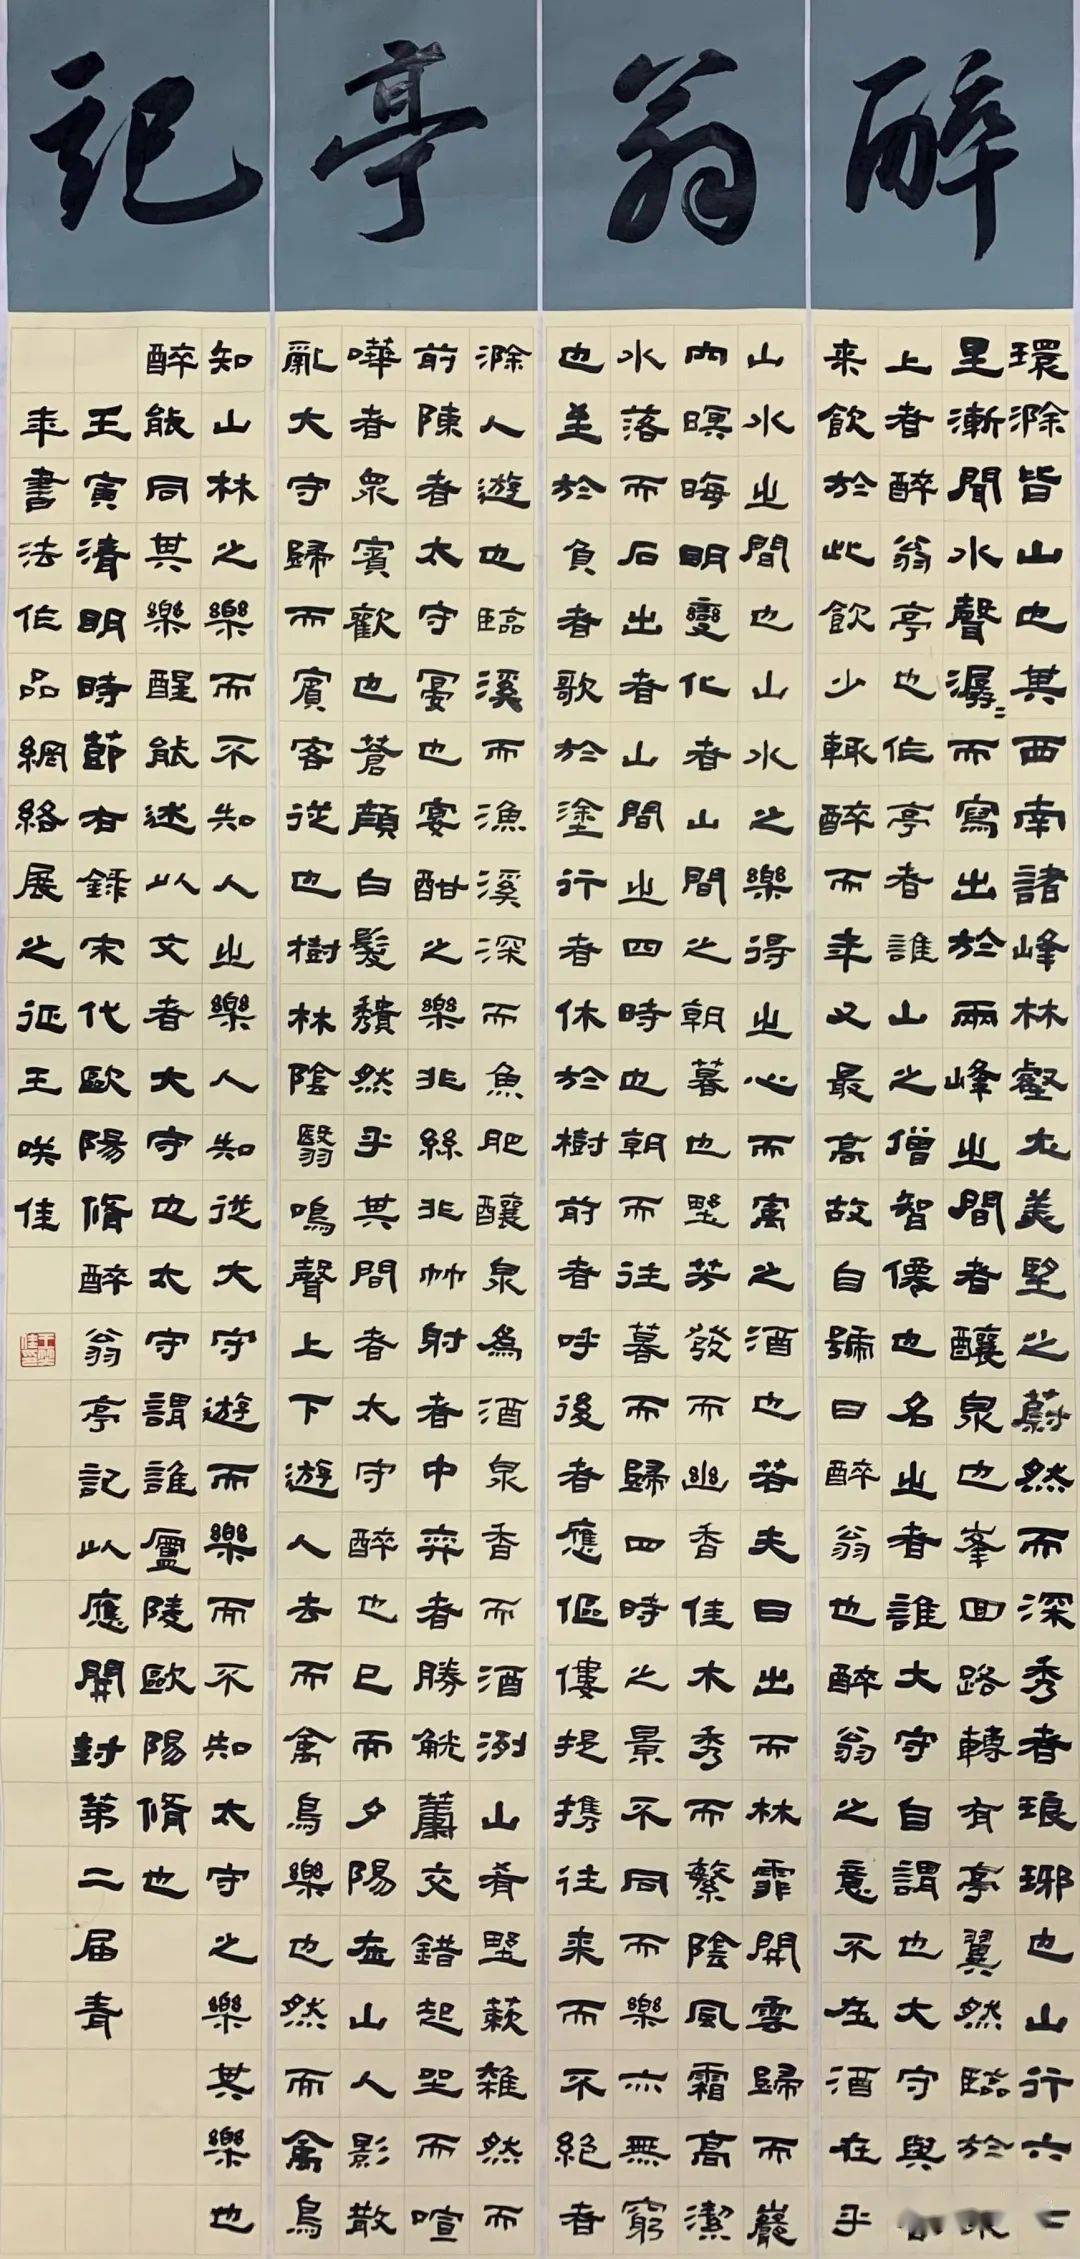 醉翁亭記
環滁皆山也其西南諸峰林壑尤美望之蔚然而深秀者琅琊也山行六七
里漸聞水聲潺〻而寫出於兩峰之間者釀泉也峯回路轉有亭翼然臨於
上者醉翁亭也作亭者誰山之僧智僊也名之者誰大守自謂也大守與
来飲於此飲少輒醉而年又最高故自號曰醉翁也醉翁之意不在酒在乎
山水之間也山水之樂得之心而寓之酒也若夫日出而林霏開雲歸而巖
內暝晦明變化者山間之朝暮也野芳發而幽香佳木秀而繁陰風霜高潔
水落而石出者山間之四時也朝而往暮而歸四時之景不同而樂亦無窮
也至於負者歌於塗行者休於樹前者呼後者應傴僂提携往来而不絕者
滁人遊也臨溪而漁溪深而魚肥釀泉為酒泉香而酒洌山肴野蔌雜然而
前陳者太守宴也宴酣之樂非絲非竹射者中弈者勝觥籌交錯起坐而喧
嘩者眾賓歡也蒼顏白髮頹然乎其間者太守醉也已而夕陽在山人影散
亂大守歸而賓客從也樹林陰翳鳴聲上下遊人去而禽鳥樂也然而禽鳥
知山林之樂而不知人之樂人知從大守遊而樂而不知太守之樂其樂也
醉能同其樂醒能述以文者大守也太守謂誰廬陵歐陽脩也
壬寅清明時節有録宋代歐陽脩醉翁亭記以應開封第二届青
年書法作品網絡展之征王咲佳